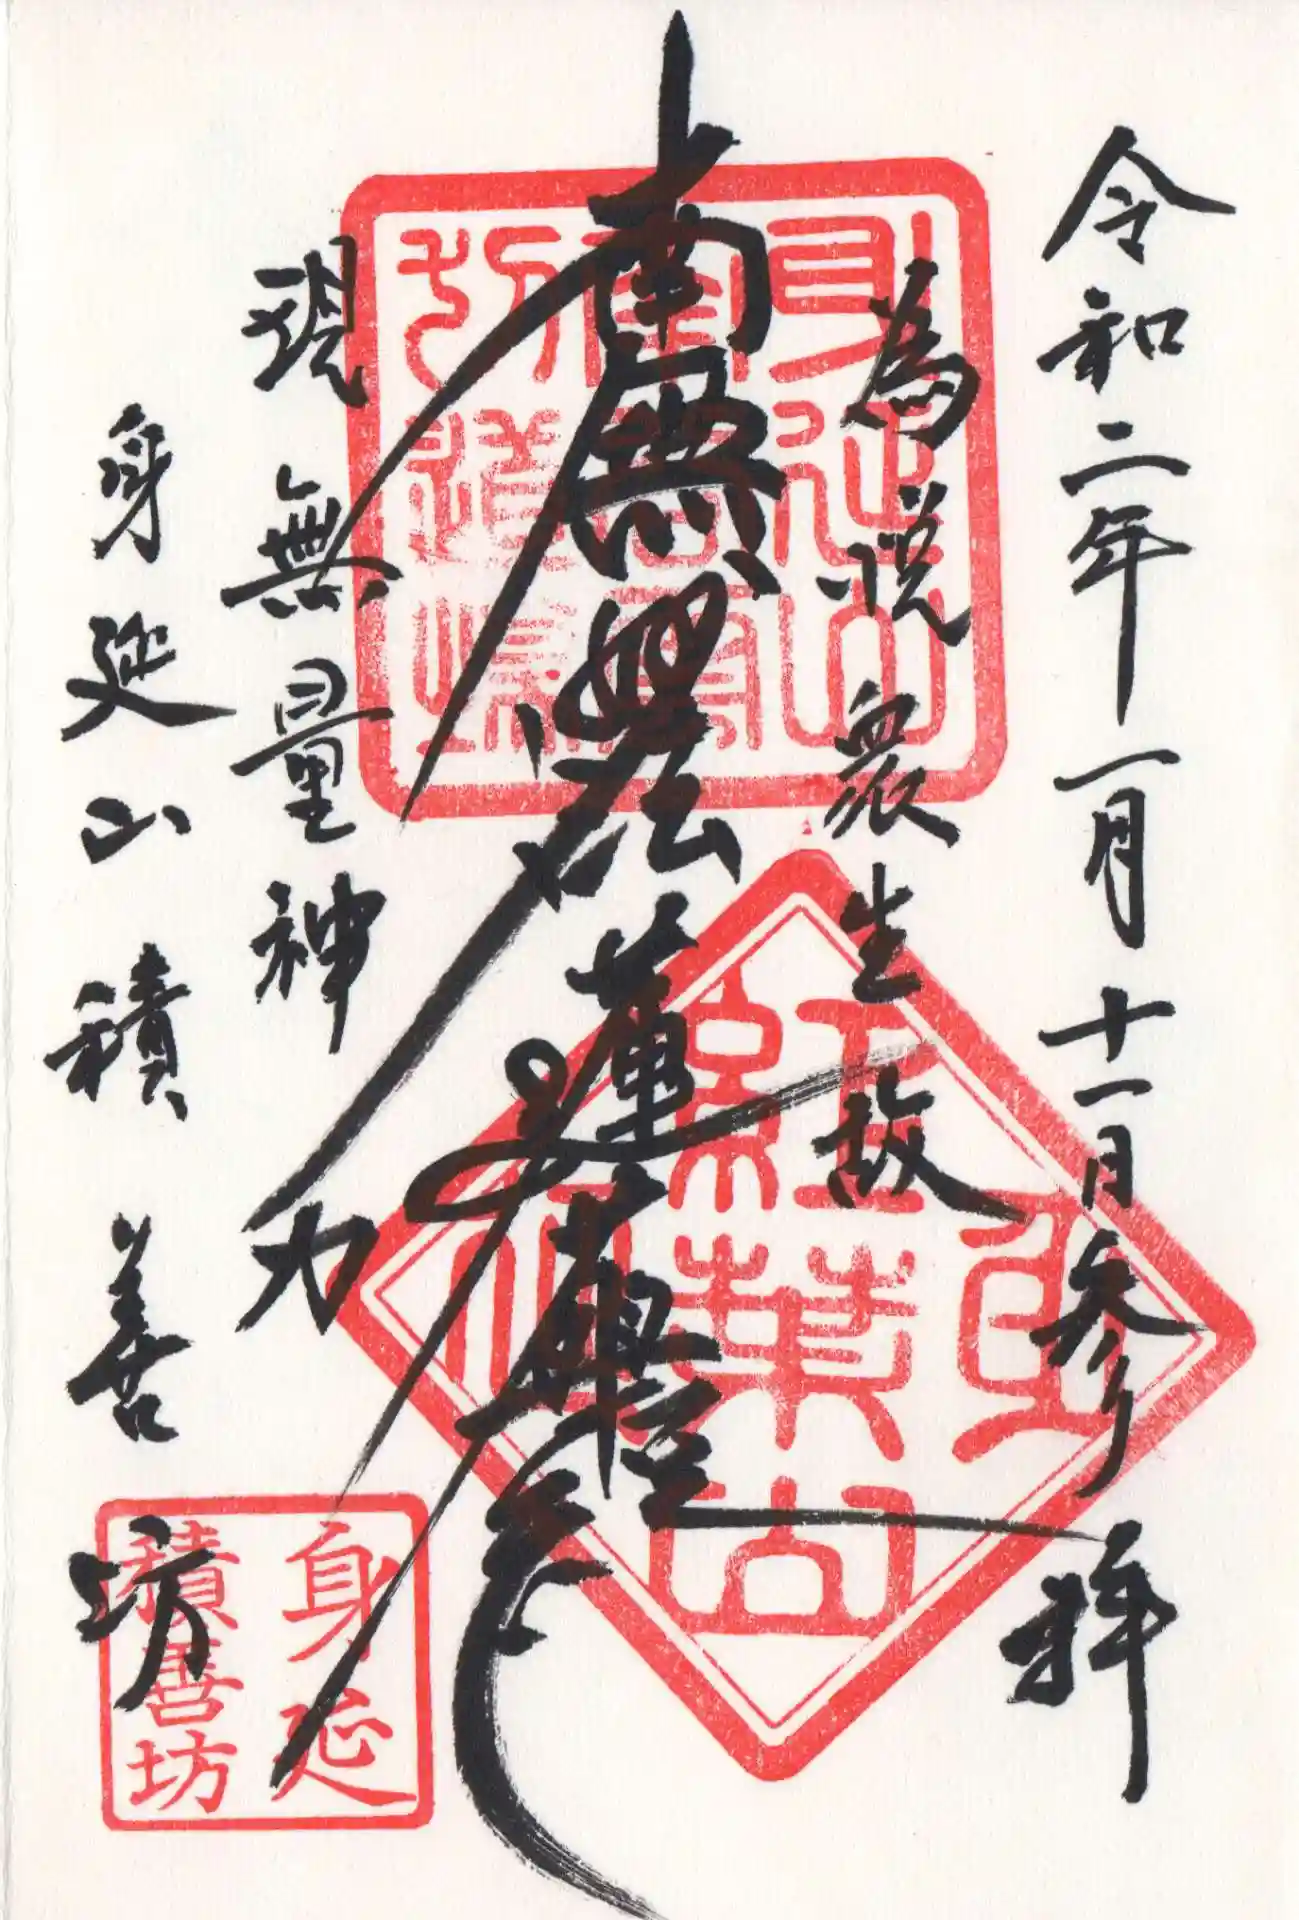 令和二年一月十一日参り拝
為悦衆生故
南無妙法蓮華経
現無量神力
身延山積善坊
身延
積善坊